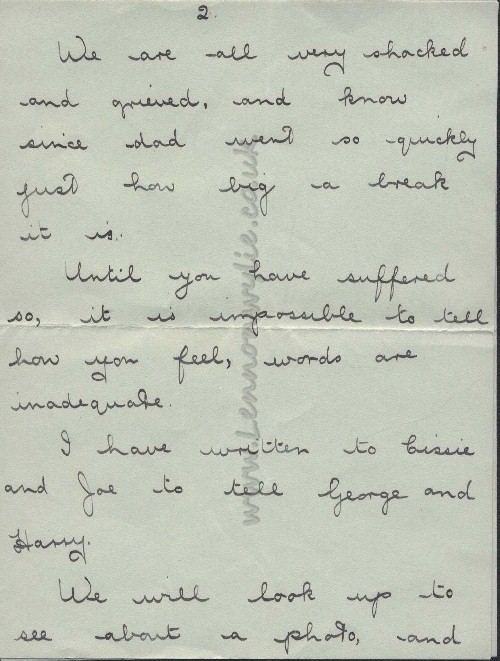 2.
We are all very shocked
and grieved, and know
since dad went so quickly
just how big a break
it is.
Until you have suffered
so, it is impossible to tell
how you feel, words are
inadequate.
I have written to Cissie
and Joe to tell George and
Harry.
We will look up to
see about a photo, and
www.Lennoxwylie.co.uk